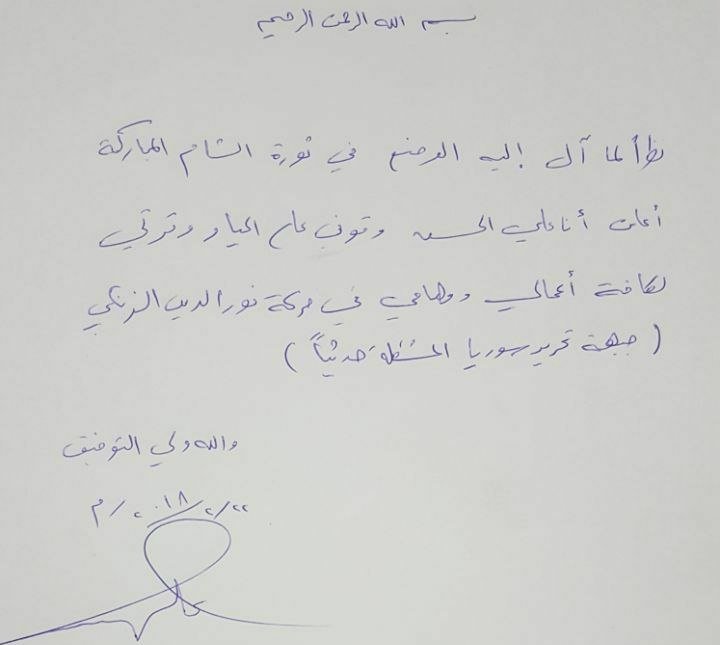 بسم الله الرحمن الرحيم
نظراً لما آل إليه الوضع في ثورة الشام المباركة
أعلن أنا علي الحسن وقوفي على الحياد وتركي
لكافة أعمالي ومهامي في حركة نور الدين الزنكي
(جبهة تحرير سوريا المشكلة حديثاً)
والله ولي التوفيق
٢٢/٢/٢٠١٨م